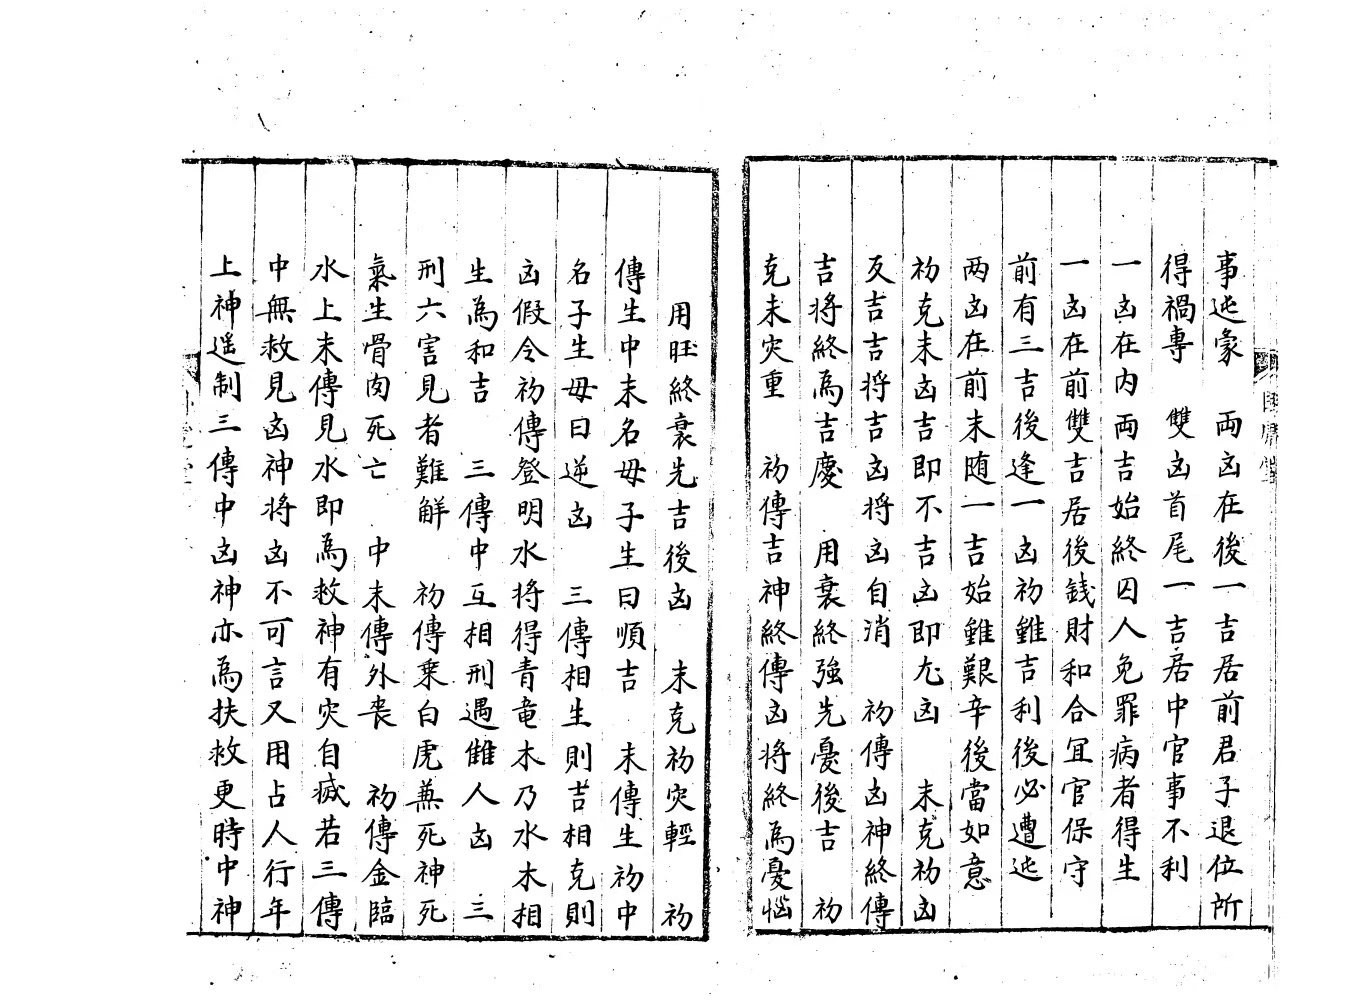 事迍蒙　両凶在後一吉居前君子退位所
得禍專　雙凶首尾一吉居中官事不利
一凶在内両吉始終囚人免罪病者得生
一凶在前雙吉居後錢財和合冝官保守
前有三吉後逢一凶初雖吉利後必遭迍
両凶在前末随一吉始雖艱辛後當如意
初克末凶吉即不吉凶即尤凶　末克初凶
反吉吉将吉凶将凶自消　初傳凶神終傳
吉将終爲吉慶　用衰終強先憂後吉　初
克末灾重　初傳吉神終傳凶将終爲憂惱
用旺終衰先吉後凶　末克初灾輕　初
傳生中末名母子生曰順吉　末傳生初中
名子生毋曰逆凶　三傳相生則吉相克則
凶假令初傳登明水将得青竜木乃水木相
生爲和吉　三傳中互相刑遇雠人凶　三
刑六害見者難解　初傳乗白虎兼死神死
氣生骨肉死亡　中末傳外喪　初傳金臨
水上末傳見水即爲救神有灾自滅若三傳
中無救見凶神将凶不可言又用占人行年
上神遥制三傳中凶神亦爲扶救更時中神